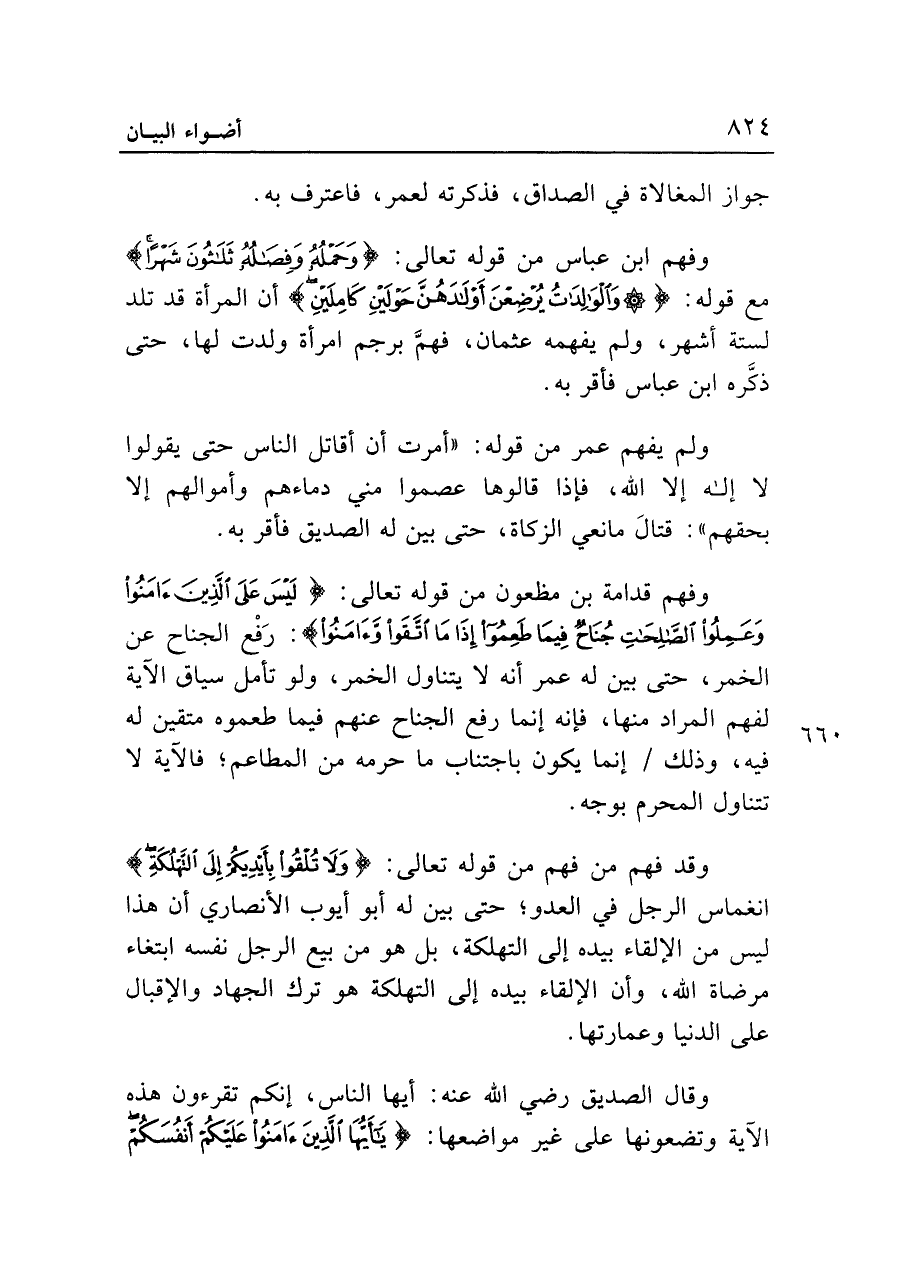 ٨٢٤ أضواء البيان
جواز المغالاة في الصداق، فذكرته لعمر، فاعترف به.
وفهم ابن عباس من قوله تعالى: ﴿ وَحَمْلُهُۥ وَفِصَٰلُهُۥ ثَلَٰثُونَ شَهْرًاۚ ﴾
مع قوله: ﴿ ۞ وَٱلْوَٰلِدَٰتُ يُرْضِعْنَ أَوْلَٰدَهُنَّ حَوْلَيْنِ كَامِلَيْنِۖ ﴾ أن المرأة قد تلد
لستة أشهر، ولم يفهمه عثمان، فهمَّ برجم امرأة ولدت لها، حتى
ذكَّره ابن عباس فأقر به.
ولم يفهم عمر من قوله: «أمرت أن أقاتل الناس حتى يقولوا
لا إلـٰه إلا الله، فإذا قالوها عصموا مني دماءهم وأموالهم إلا
بحقهم»: قتالَ مانعي الزكاة، حتى بين له الصديق فأقر به.
وفهم قدامة بن مظعون من قوله تعالى: ﴿ لَيْسَ عَلَى ٱلَّذِينَ ءَامَنُوا۟
وَعَمِلُوا۟ ٱلصَّٰلِحَٰتِ جُنَاحٌ فِيمَا طَعِمُوٓا۟ إِذَا مَا ٱتَّقَوا۟ وَّءَامَنُوا۟ ﴾: رَفْع الجناح عن
الخمر، حتى بين له عمر أنه لا يتناول الخمر، ولو تأمل سياق الآية
لفهم المراد منها، فإنه إنما رفع الجناح عنهم فيما طعموه متقين له
٦٦٠
فيه، وذلك / إنما يكون باجتناب ما حرمه من المطاعم؛ فالآية لا
تتناول المحرم بوجه.
وقد فهم من فهم من قوله تعالى: ﴿ وَلَا تُلْقُوا۟ بِأَيْدِيكُمْ إِلَى ٱلتَّهْلُكَةِۖ ﴾
انغماس الرجل في العدو؛ حتى بين له أبو أيوب الأنصاري أن هذا
ليس من الإلقاء بيده إلى التهلكة، بل هو من بيع الرجل نفسه ابتغاء
مرضاة الله، وأن الإلقاء بيده إلى التهلكة هو ترك الجهاد والإقبال
على الدنيا وعمارتها.
وقال الصديق رضي الله عنه: أيها الناس، إنكم تقرءون هذه
الآية وتضعونها على غير مواضعها: ﴿ يَٰٓأَيُّهَا ٱلَّذِينَ ءَامَنُوا۟ عَلَيْكُمْ أَنفُسَكُمْۖ